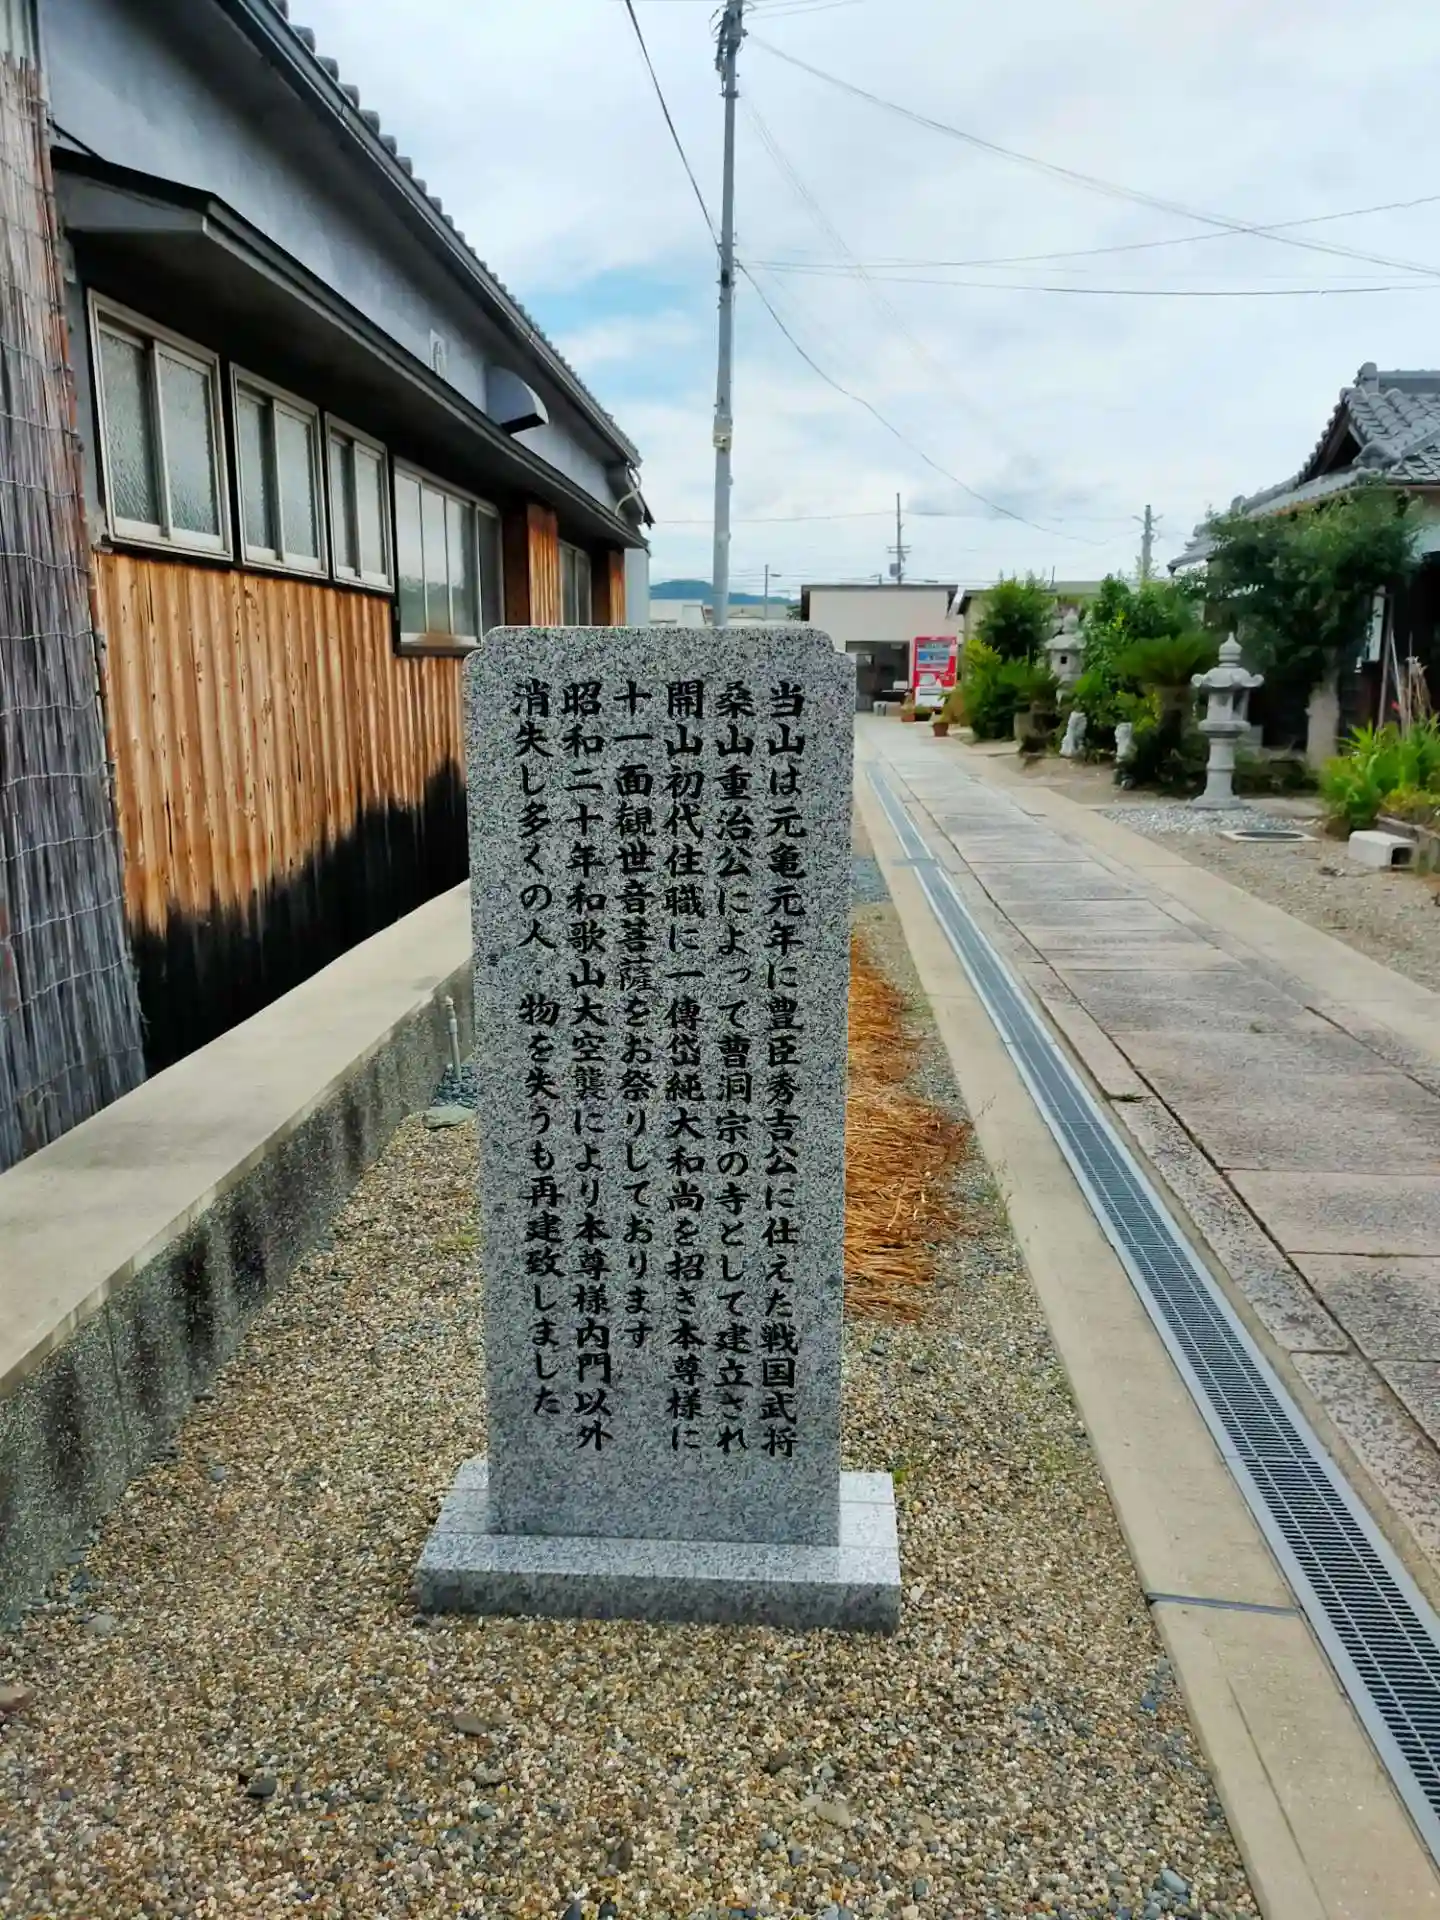 当山は元亀元年に豊臣秀吉公に仕えた戦国武将
桑山重治公によって曹洞宗の寺として建立され
開山初代住職に一傳岱純大和尚を招き本尊様に
十一面観世音菩薩をお祭りしております
昭和二十年和歌山大空襲により本尊様内門以外
消失し多くの人 物を失うも再建致しました